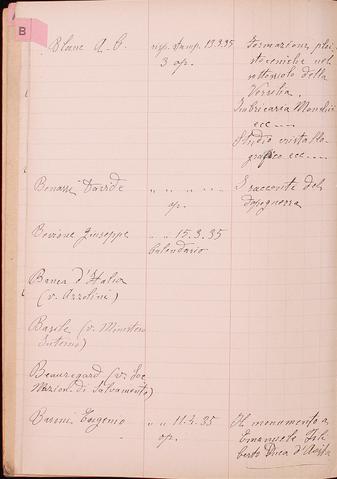 B
Blanc A. C. risp. stamp. 13.3.35 Formazioni plei
3 op. stoceniche nel
sottosuolo della
Versilia.
Imbricaria Mondii
ecc ----
Studio cristallo
grafico ecc ----
Bonassi " " " " I racconti del
op. dopoguerra
Bovione Giuseppe " " 15.3.35
Calendario
Banca d'Italia
(v. Azzolini)
Basile (v. Ministero
Interno)
Beauregard (v. Soc
Nazion. di Salvamento)
Baroni Eugenio " " 11.4.35 Il monumento a
op. Emanuele Fili
berto Duca d'Aosta